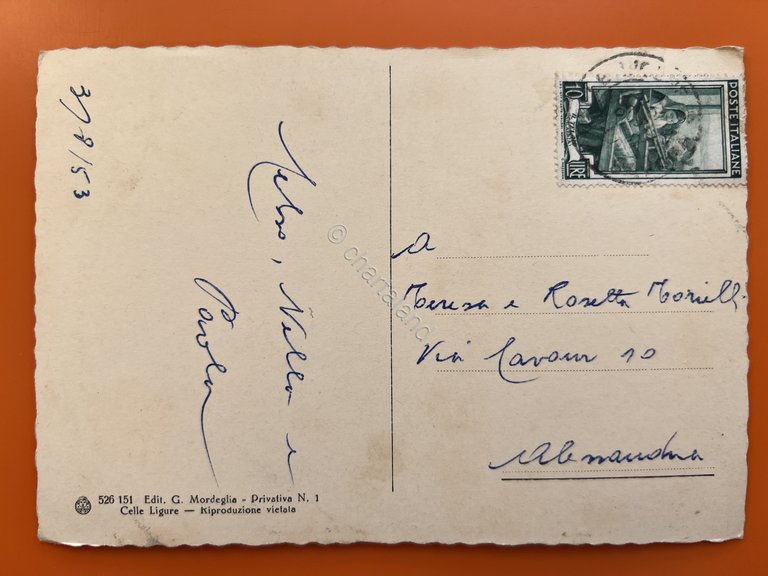 3/8/53
Nella e
Paola
526 151 Edit. G. Mordeglia - Privativa N. 1
Celle Ligure — Riproduzione vietata
10
LIRE
POSTE ITALIANE
A
Teresa e Rosetta
Via Cavour 10
Alessandria
© charta